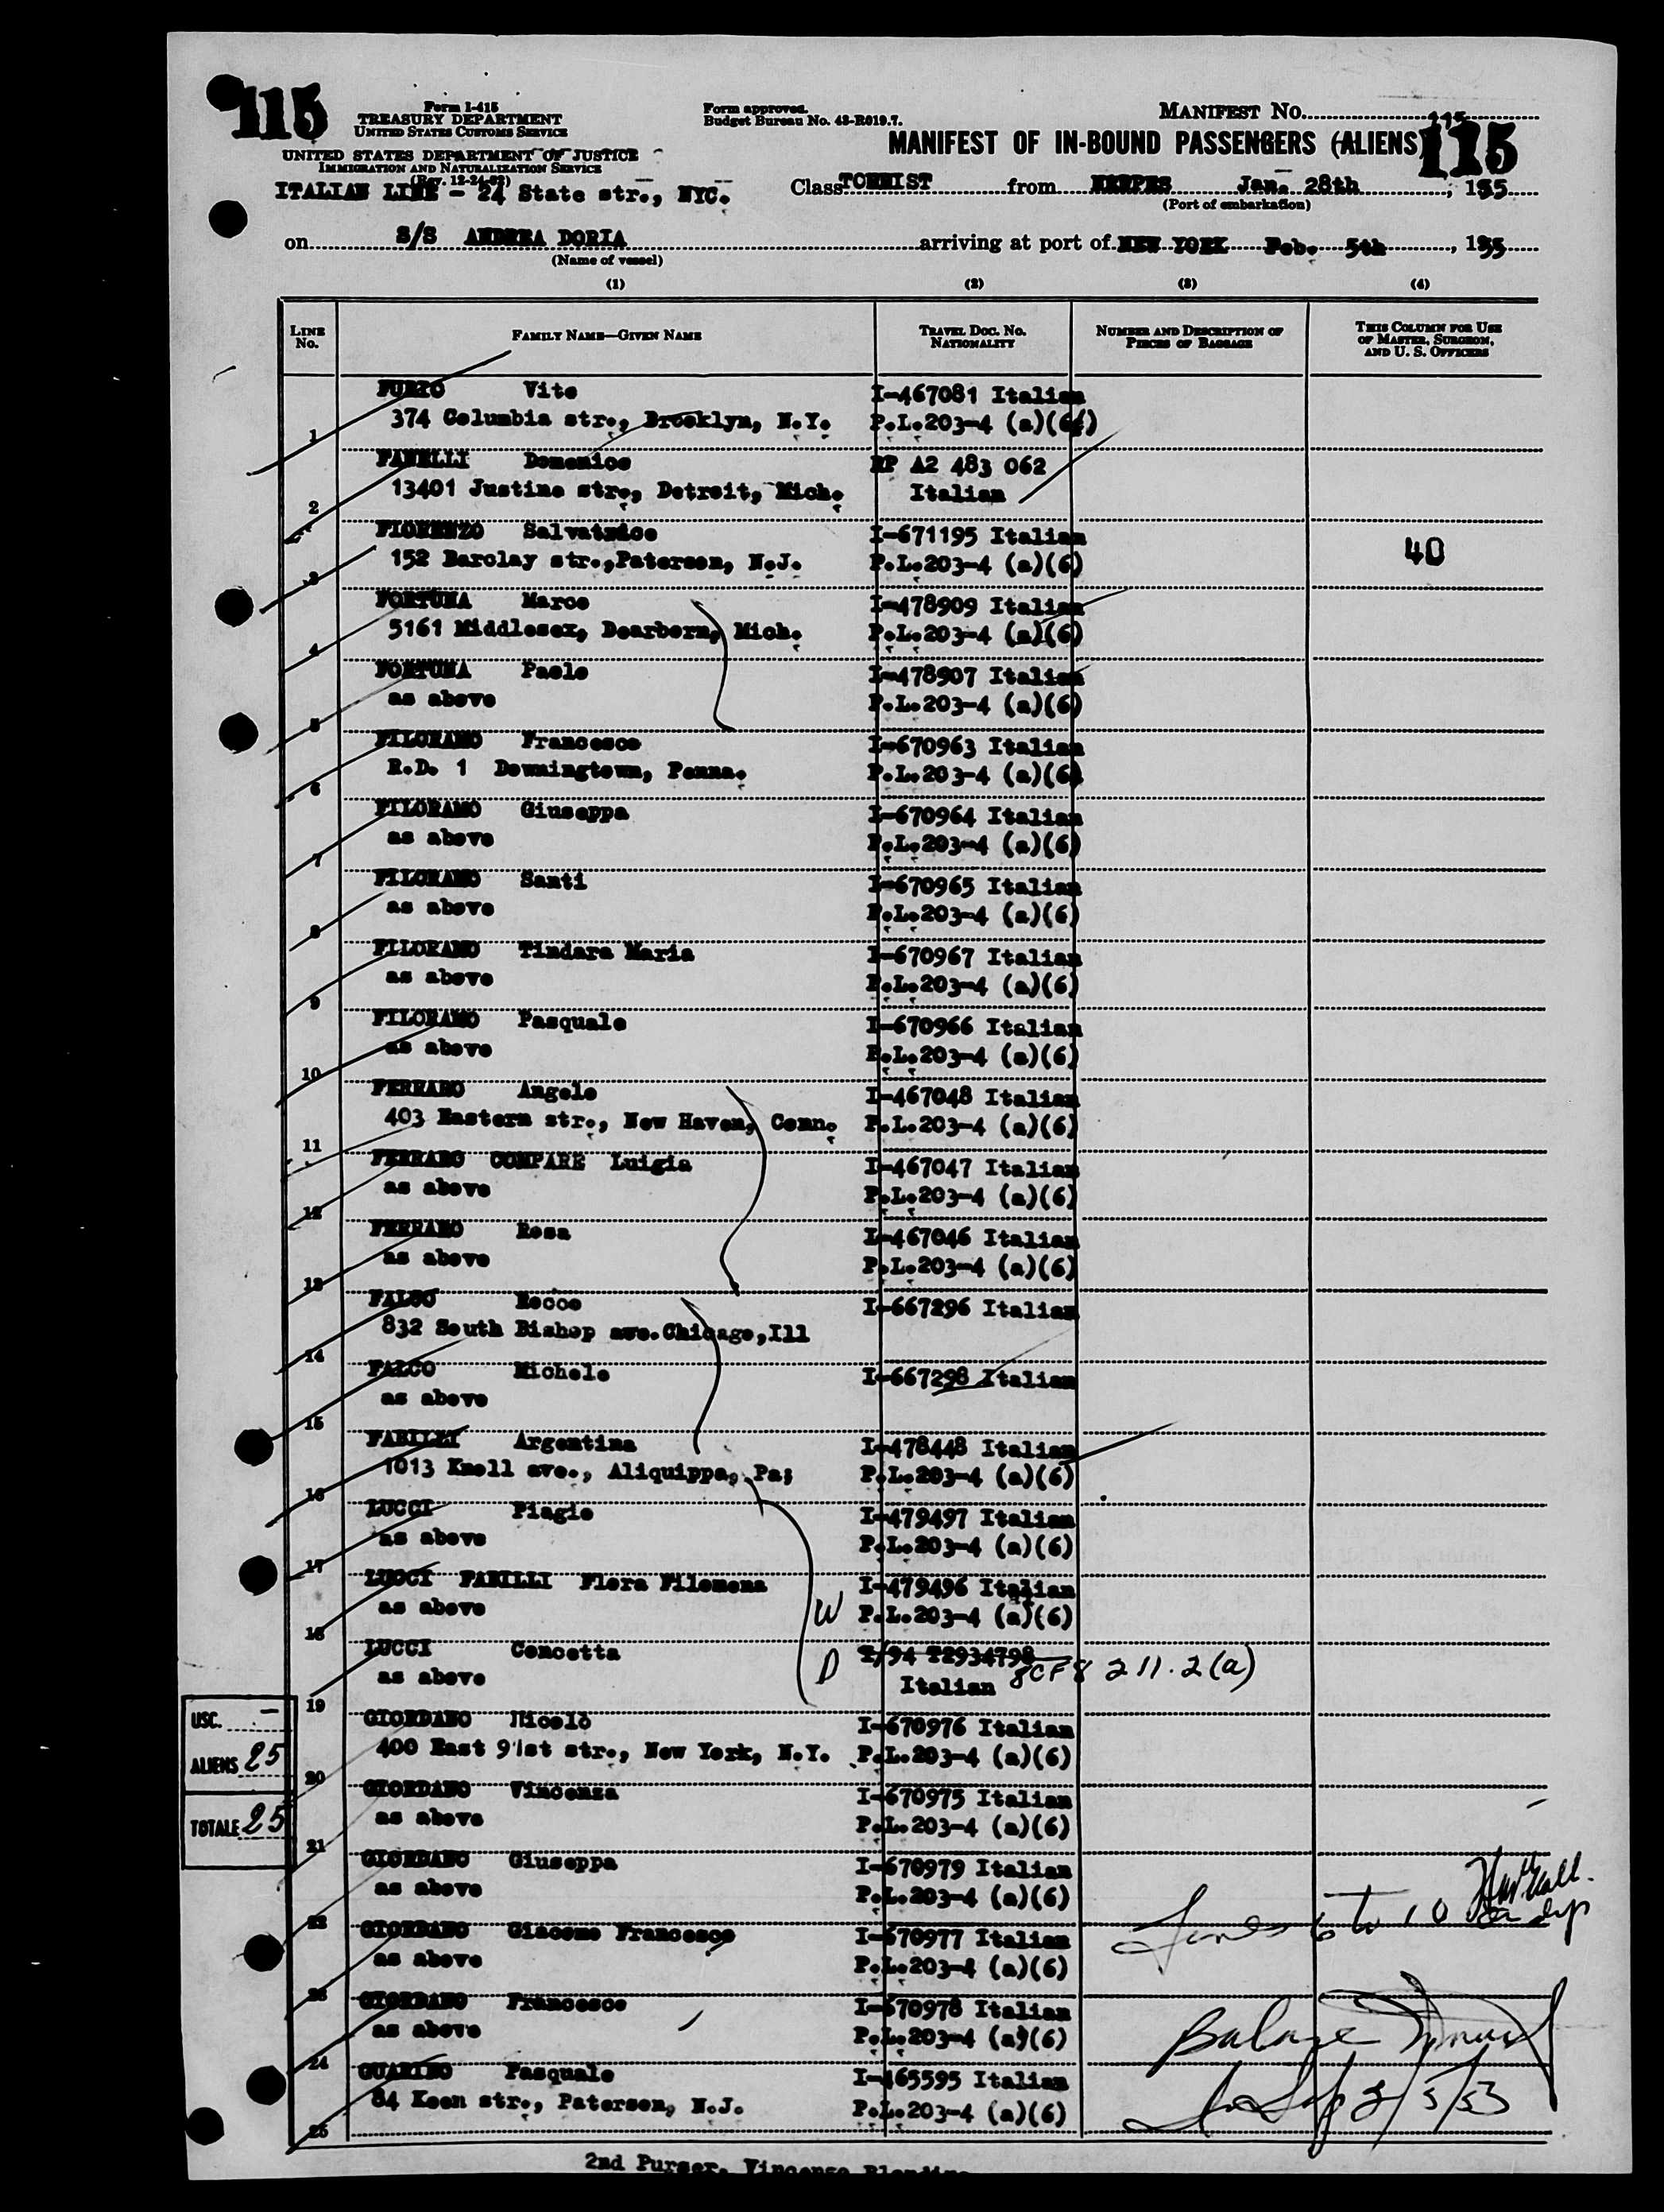 115
Form I-415
TREASURY DEPARTMENT
UNITED STATES CUSTOMS SERVICE
UNITED STATES DEPARTMENT OF JUSTICE
IMMIGRATION AND NATURALIZATION SERVICE
(Rev. 12-24-52)
Form approved.
Budget Bureau No. 43-R019.7.
MANIFEST NO. 115
MANIFEST OF IN-BOUND PASSENGERS (ALIENS
115
ITALIAN LINE - 24 State str., NYC.
Class TOURIST from Jan. 28th, 1955
(Port of embarkation)
on S/S ANDREA DORIA arriving at port of NEW YORK Feb. 5th, 1955
(Name of vessel)
(1) (2) (3) (4)
LINE No.
FAMILY NAME—GIVEN NAME
TRAVEL DOC. NO. NATIONALITY
NUMBER AND DESCRIPTION OF PIECES OF BAGGAGE
THIS COLUMN FOR USE OF MASTER, SURGEON, AND U. S. OFFICERS
Vito I-467081 Italian
1 374 Columbia str., Brooklyn, N.Y. P.L.203-4 (a)(6)
FANELLI Domenico RP A2 483 062
2 13401 Justine str., Detroit, Mich. Italian
FIORENZO Salvatrice I-671195 Italian
3 152 Barclay str.,Paterson, N.J. P.L.203-4 (a)(6) 40
FORTUNA Marco I-478909 Italian
4 5161 Middlesex, Dearborn, Mich. P.L.203-4 (a)(6)
FORTUNA Paolo I-478907 Italian
5 as above P.L.203-4 (a)(6)
FILORAMO Francesco I-670963 Italian
6 R.D. 1 Downingtown, Penna. P.L.203-4 (a)(6)
FILORAMO Giuseppa I-670964 Italian
7 as above P.L.203-4 (a)(6)
FILORAMO Santi I-670965 Italian
8 as above P.L.203-4 (a)(6)
FILORAMO Tindara Maria I-670967 Italian
9 as above P.L.203-4 (a)(6)
FILORAMO Pasquale I-670966 Italian
10 as above P.L.203-4 (a)(6)
FERRARO Angelo I-467048 Italian
11 403 Eastern str., New Haven, Conn. P.L.203-4 (a)(6)
FERRARO COMPARE Luigia I-467047 Italian
12 as above P.L.203-4 (a)(6)
FERRARO Rosa I-467046 Italian
13 as above P.L.203-4 (a)(6)
FALCO Rocco I-667296 Italian
14 832 South Bishop ave.Chicago,Ill
FALCO Michele I-667298 Italian
15 as above
Argentina I-478448 Italian
16 1013 Knoll ave., Aliquippa, Pa; P.L.203-4 (a)(6)
LUCCI Piagio I-479497 Italian
17 as above P.L.203-4 (a)(6)
LUCCI Flora Filomena I-479496 Italian
18 as above W P.L.203-4 (a)(6)
LUCCI Concetta D T/94 T2934798
19 as above Italian 8CFR 211.2(a)
GIORDANO Nicolò I-670976 Italian
20 400 East 91st str., New York, N.Y. P.L.203-4 (a)(6)
GIORDANO Vincenza I-670975 Italian
21 as above P.L.203-4 (a)(6)
GIORDANO Giuseppa I-670979 Italian
22 as above P.L.203-4 (a)(6)
GIORDANO Giacomo Francesco I-670977 Italian
23 as above P.L.203-4 (a)(6)
GIORDANO Francesco I-670978 Italian
24 as above P.L.203-4 (a)(6)
GUARINO Pasquale I-465595 Italian
25 84 Keen str., Paterson, N.J. P.L.203-4 (a)(6)
USC. -
ALIENS 25
TOTALE 25
Lines 6 to 10
Balance
2nd Purser, Vincenzo